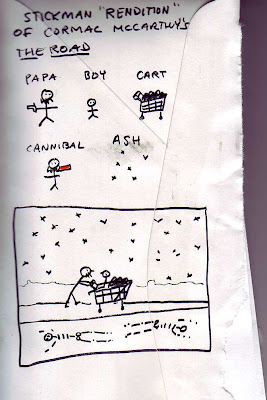 STICKMAN "RENDITION"
OF CORMAC MCCARTHY'S
THE ROAD
PAPA BOY CART
CANNIBAL ASH